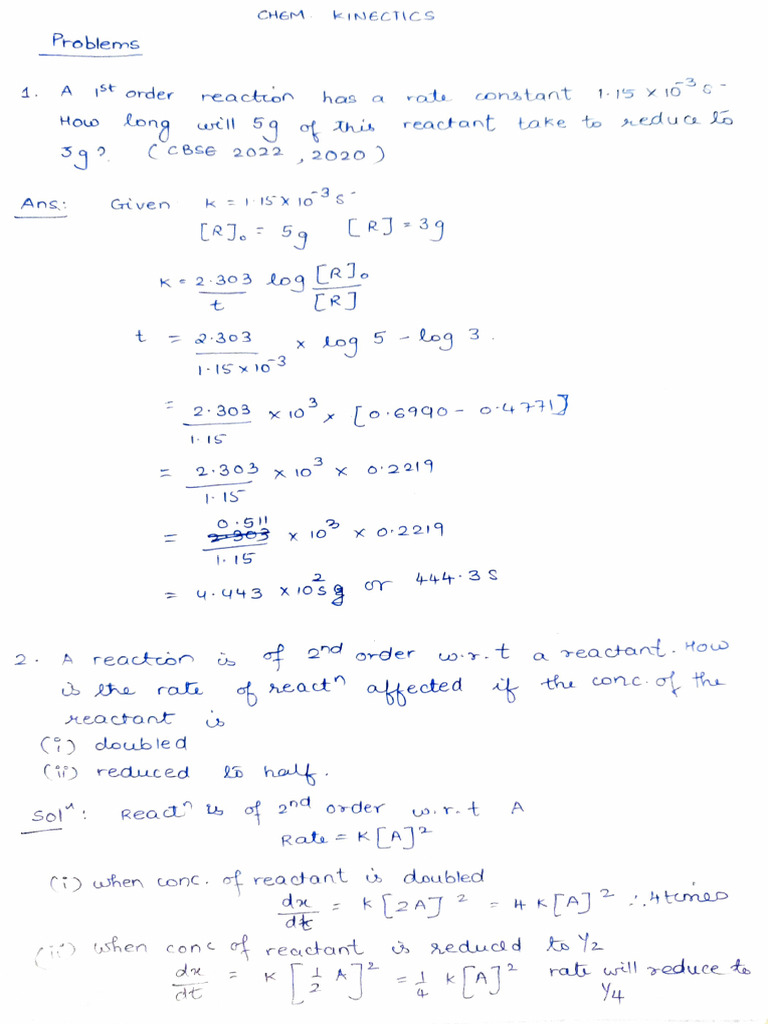 CHEM. KINECTICS
Problems
1. A 1st order reaction has a rate constant 1.15 × 10⁻³ s⁻
How long will 5g of this reactant take to reduce to
3g? (CBSE 2022, 2020)
Ans: Given K = 1.15 × 10⁻³ s⁻
[R]₀ = 5g [R] = 3g
K = 2.303/t log [R]₀/[R]
t = 2.303/1.15×10⁻³ × log 5 − log 3.
= 2.303/1.15 × 10³ × [0.6990 − 0.4771]
= 2.303/1.15 × 10³ × 0.2219
0.511
= 2.303/1.15 × 10³ × 0.2219
= 4.443 × 10² s or 444.3 s
2. A reaction is of 2nd order w.r.t a reactant. How
is the rate of reactⁿ affected if the conc. of the
reactant is
(i) doubled
(ii) reduced to half.
Solⁿ: Reactⁿ is of 2nd order w.r.t A
Rate = K[A]²
(i) when conc. of reactant is doubled
dx/dt = K[2A]² = 4K[A]² ∴ 4 times
(ii) when conc of reactant is reduced to 1/2
dx/dt = K[1/2 A]² = 1/4 K[A]² rate will reduce to
1/4